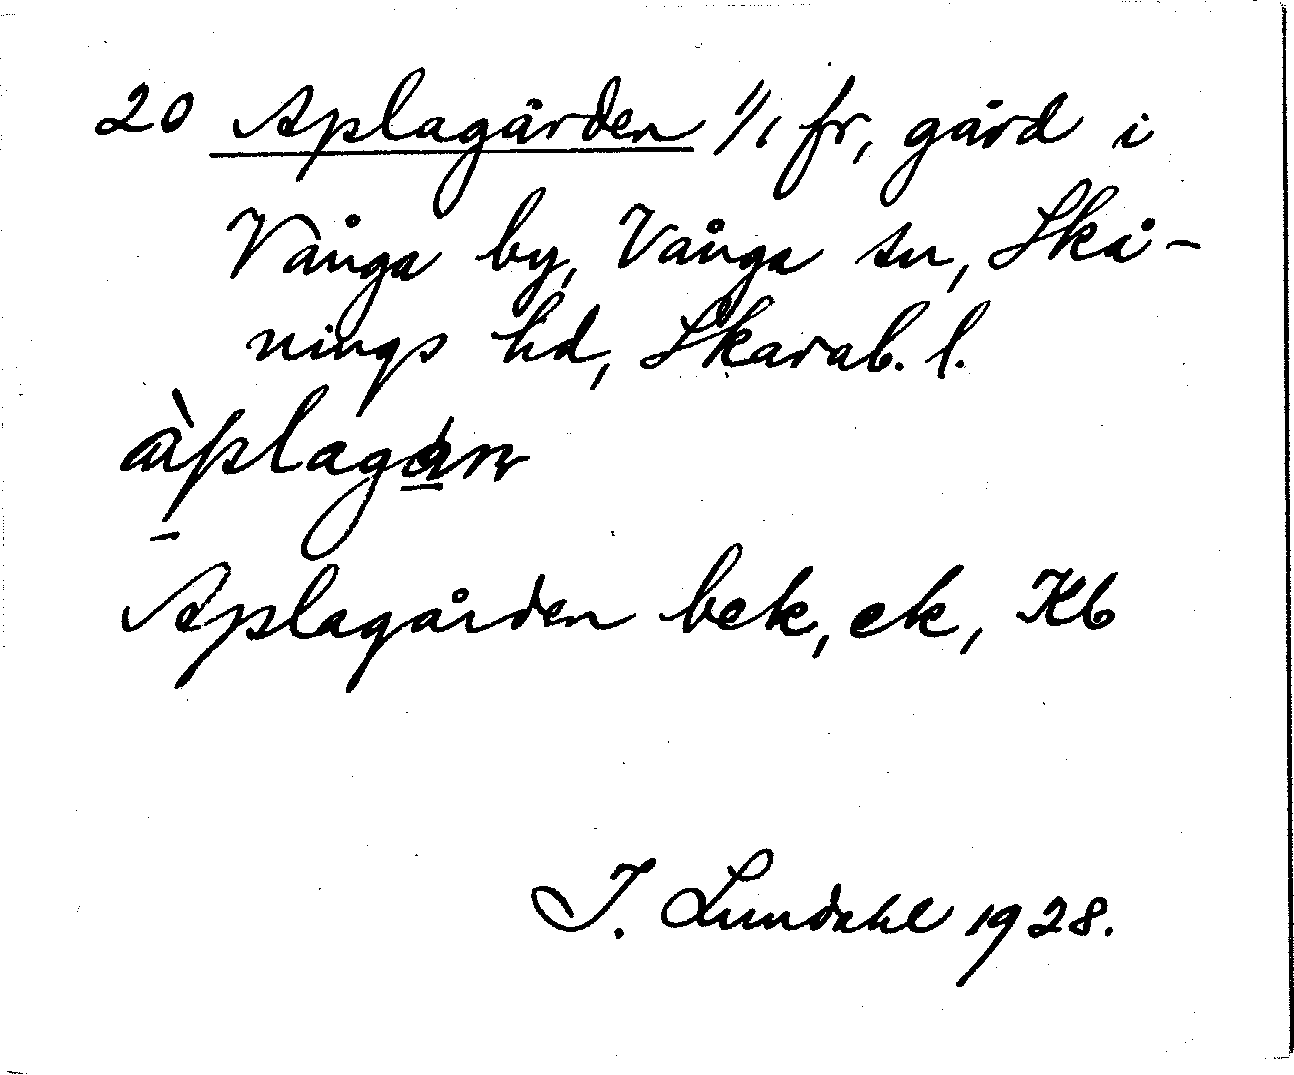 20 Aplagården 1/1 fr, gård i
Vånga by, Vånga sn, Skå-
nings hd, Skarab. l.
Aplagården bek, ek, Kb
I. Lundahl 1928.